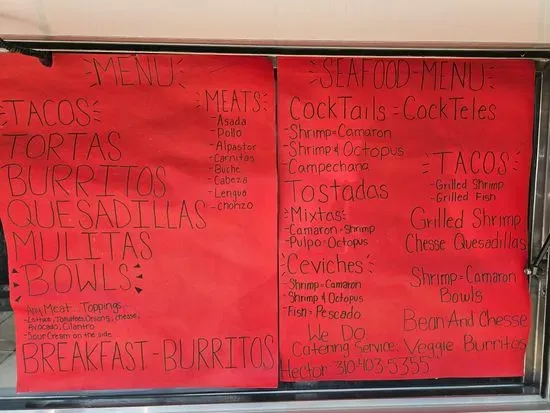 MENU
TACOS
TORTAS
BURRITOS
QUESADILLAS
MULITAS
BOWLS
Any Meat. Toppings
-Lettuce, Tomatoes, Onions, cheese,
Avocado, Cilantro
-Sour Cream on the side
BREAKFAST-BURRITOS
MEATS
-Asada
-Pollo
-Alpastor
-Carnitas
-Buche
-Cabeza
-Lengua
-chorizo
SEAFOOD-MENU
CockTails=CockTeles
-Shrimp=Camaron
-Shrimp & Octopus
Campechana
Tostadas
-Mixtas
-Camaron-Shrimp
-Pulpo-Octopus
Ceviches
Shrimp=Camaron
-Shrimp & Octopus
-Fish-Pescado
TACOS
-Grilled Shrimp
-Grilled Fish
Grilled Shrimp
Chesse Quesadillas
Shrimp=Camaron
Bowls
Bean And Chesse
Veggie Burritos
We Do
Catering Service.
Hector 310-403-5355